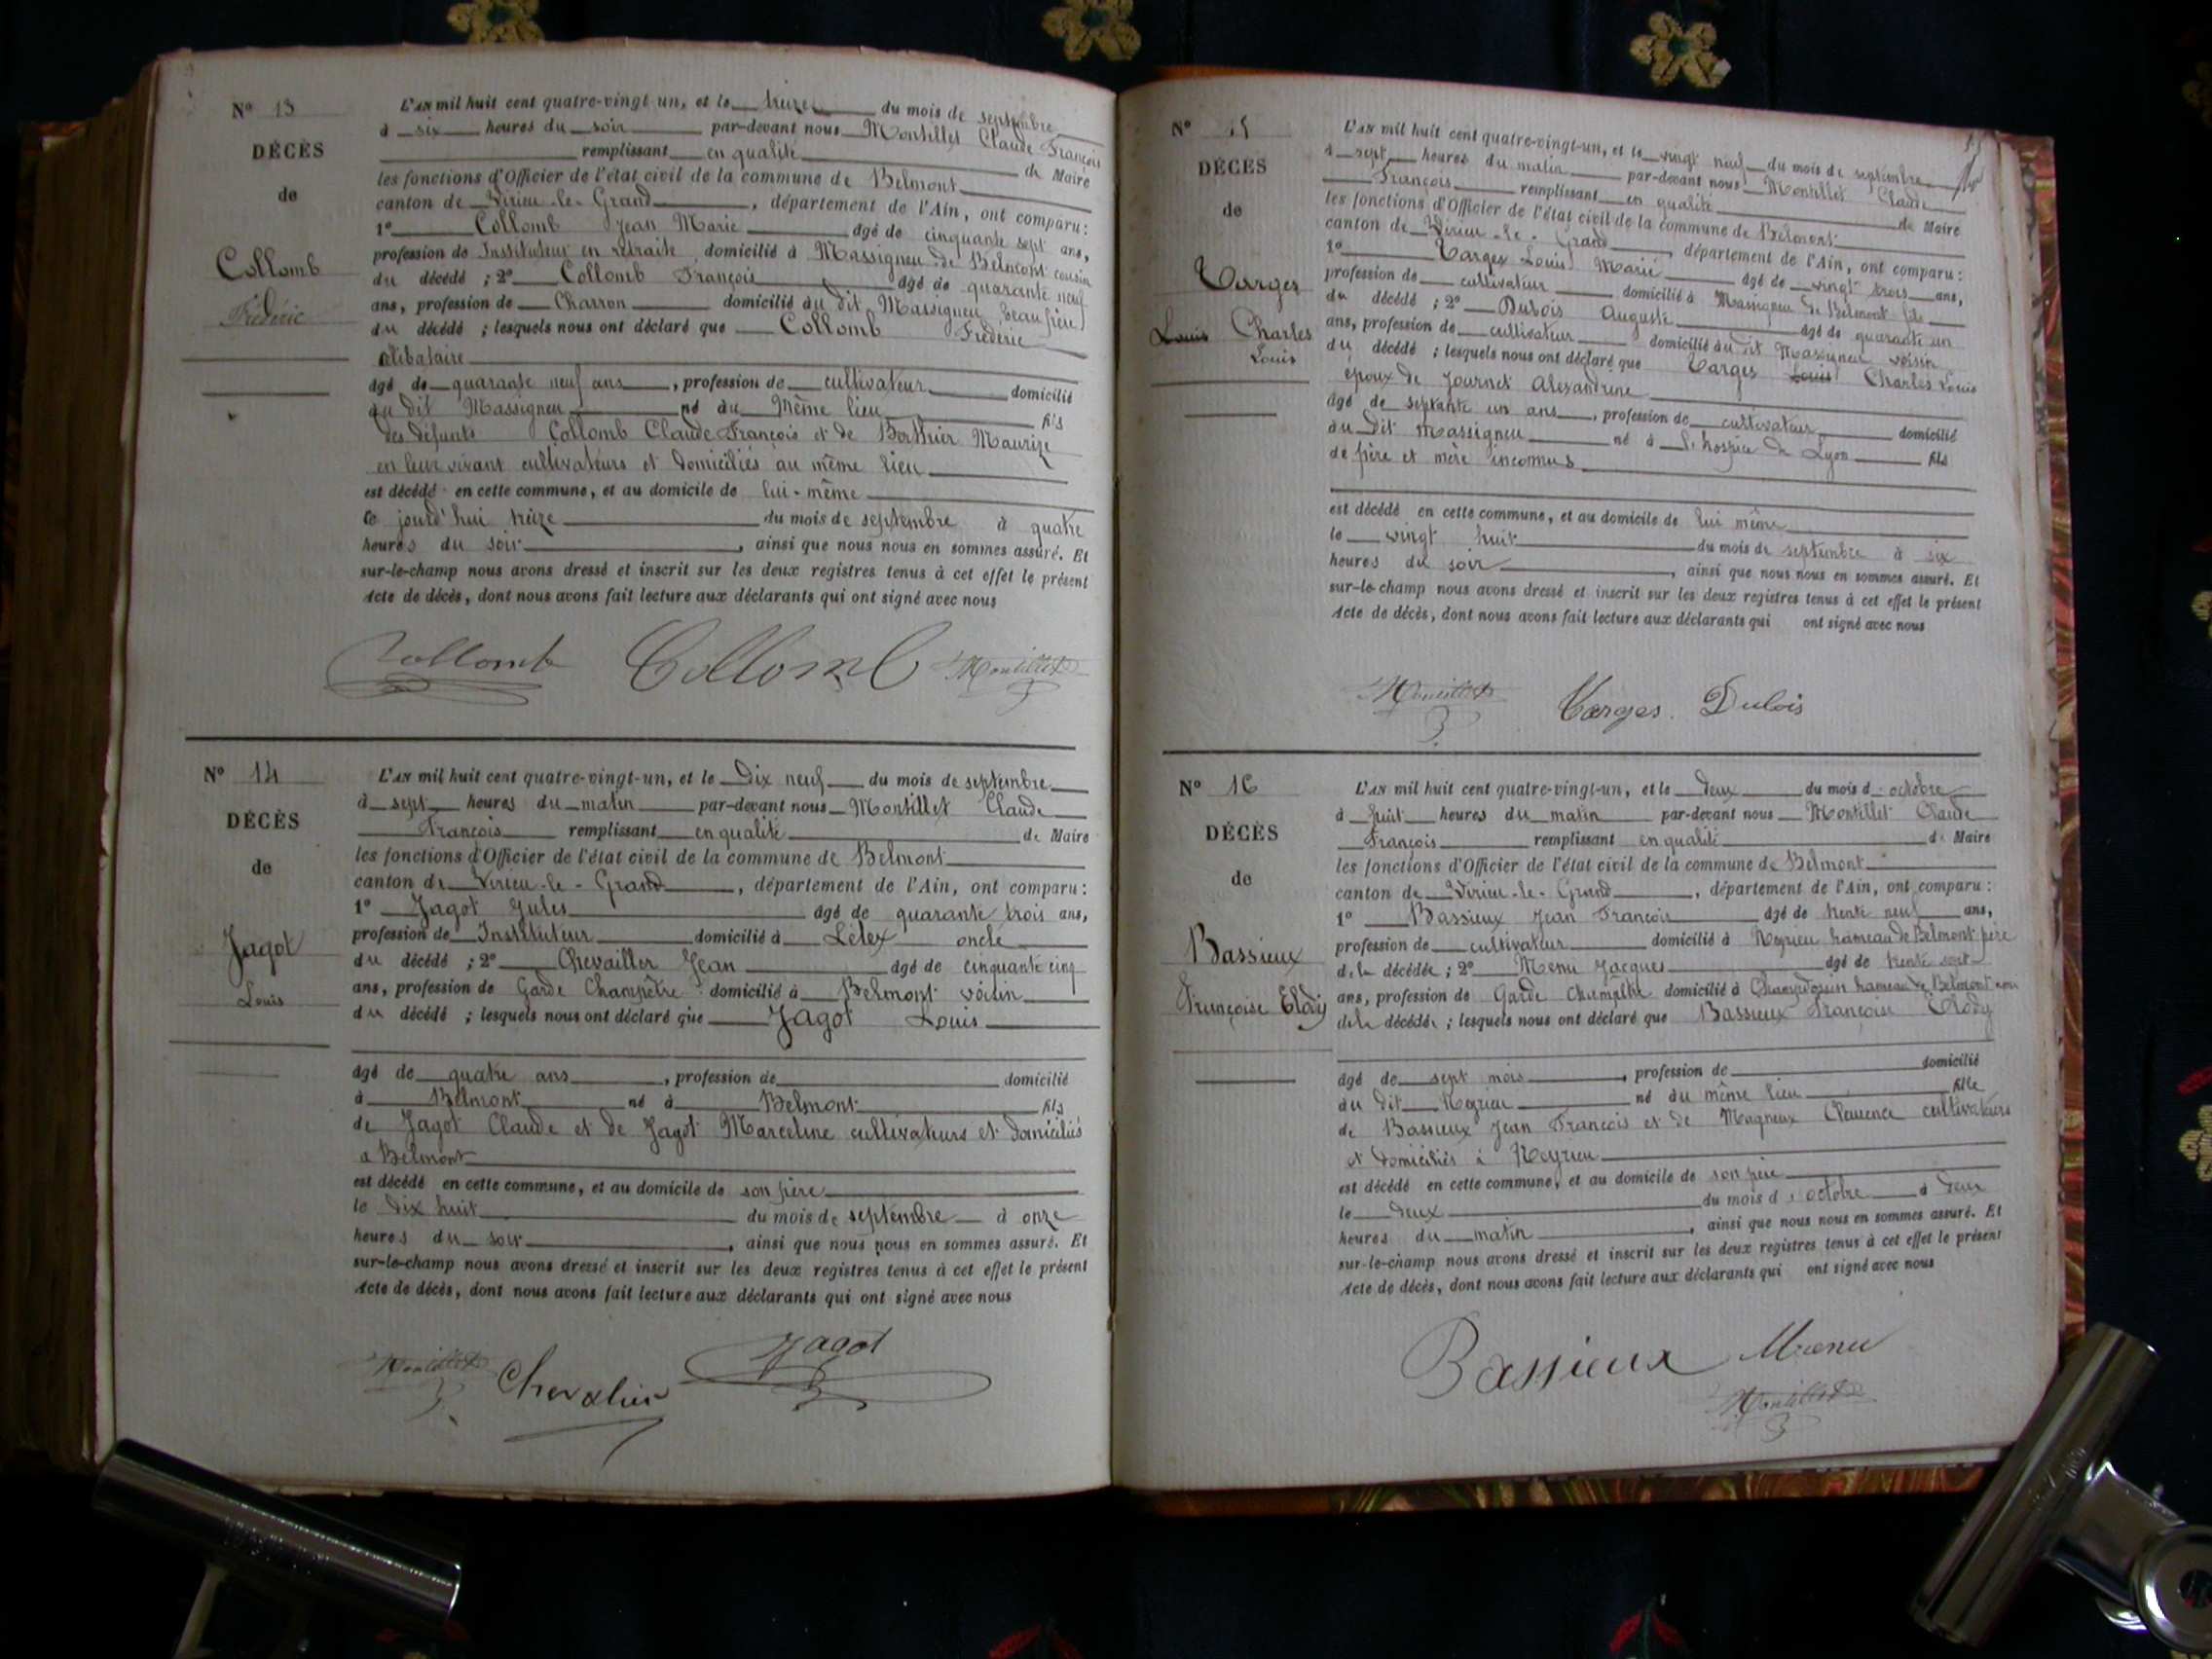 N° 13
DÉCÈS
de
Collomb
Frédéric
L'AN mil huit cent quatre-vingt un, et le treize du mois de septembre
à six heures du soir par-devant nous Montillet Claude François
remplissant en qualité de Maire
les fonctions d'Officier de l'état civil de la commune de Belmont
canton de Virieu-le-Grand, département de l'Ain, ont comparu:
1° Collomb Jean Marie âgé de cinquante sept ans,
profession de Instituteur en retraite domicilié à Massigneu de Belmont cousin
du décédé ; 2° Collomb François âgé de quarante neuf
ans, profession de Charron domicilié au dit Massigneu, beau frère
du décédé ; lesquels nous ont déclaré que Collomb Frédéric
célibataire
âgé de quarante neuf ans, profession de cultivateur domicilié
au dit Massigneu né au même lieu fils
des défunts Collomb Claude François et de Berthier Maurize
en leur vivant cultivateurs et domiciliés au même lieu
est décédé en cette commune, et au domicile de lui-même
ce jourd'hui treize du mois de septembre à quatre
heures du soir, ainsi que nous nous en sommes assuré. Et
sur-le-champ nous avons dressé et inscrit sur les deux registres tenus à cet effet le présent
Acte de décès, dont nous avons fait lecture aux déclarants qui ont signé avec nous
Collomb Collomb Montillet
N° 14
DÉCÈS
de
Jagot
Louis
L'AN mil huit cent quatre-vingt-un, et le dix neuf du mois de septembre
à sept heures du matin par-devant nous Montillet Claude
François remplissant en qualité de Maire
les fonctions d'Officier de l'état civil de la commune de Belmont
canton de Virieu-le-Grand, département de l'Ain, ont comparu:
1° Jagot Jules âgé de quarante trois ans,
profession de Instituteur domicilié à Lélex oncle
du décédé ; 2° Chevallier Jean âgé de cinquante cinq
ans, profession de Garde Champêtre domicilié à Belmont voisin
du décédé ; lesquels nous ont déclaré que Jagot Louis
âgé de quatre ans, profession de domicilié
à Belmont né à Belmont fils
de Jagot Claude et de Jagot Marceline cultivateurs et domiciliés
a Belmont
est décédé en cette commune, et au domicile de son père
le dix huit du mois de septembre à onze
heures du soir, ainsi que nous nous en sommes assuré. Et
sur-le-champ nous avons dressé et inscrit sur les deux registres tenus à cet effet le présent
Acte de décès, dont nous avons fait lecture aux déclarants qui ont signé avec nous
Montillet Chevalier Jagot
N° 15
DÉCÈS
de
Varges
Louis Charles
Louis
L'AN mil huit cent quatre-vingt-un, et le vingt neuf du mois de septembre
à sept heures du matin par-devant nous Montillet Claude
François remplissant en qualité de Maire
les fonctions d'Officier de l'état civil de la commune de Belmont
canton de Virieu-le-Grand, département de l'Ain, ont comparu:
1° Varges Louis Marie âgé de vingt trois ans,
profession de cultivateur domicilié à Massigneu de Belmont fils
du décédé ; 2° Dubois Auguste âgé de quarante un
ans, profession de cultivateur domicilié au dit Massigneu voisin
du décédé ; lesquels nous ont déclaré que Varges Louis Charles Louis
époux de Journet Alexandrine
âgé de septante un ans, profession de cultivateur domicilié
au dit Massigneu né à l'hospice de Lyon fils
de père et mère inconnus
est décédé en cette commune, et au domicile de lui même
le vingt huit du mois de septembre à six
heures du soir, ainsi que nous nous en sommes assuré. Et
sur-le-champ nous avons dressé et inscrit sur les deux registres tenus à cet effet le présent
Acte de décès, dont nous avons fait lecture aux déclarants qui ont signé avec nous
Montillet Varges Dubois
N° 16
DÉCÈS
de
Bassieux
Françoise Elody
L'AN mil huit cent quatre-vingt-un, et le deux du mois d'octobre
à huit heures du matin par-devant nous Montillet Claude
François remplissant en qualité de Maire
les fonctions d'Officier de l'état civil de la commune de Belmont
canton de Virieu-le-Grand, département de l'Ain, ont comparu:
1° Bassieux Jean François âgé de trente neuf ans,
profession de cultivateur domicilié à Neyrieu hameau de Belmont père
de la décédée ; 2° Menu Jacques âgé de trente sept
ans, profession de Garde Champêtre domicilié à hameau de Belmont
de la décédée ; lesquels nous ont déclaré que Bassieux Françoise Elody
âgé de sept mois, profession de domicilié
au dit Neyrieu né au même lieu fille
de Bassieux Jean François et de Magneux Clémence cultivateurs
et domiciliés à Neyrieu
est décédé en cette commune, et au domicile de son père
le deux du mois d'octobre à deux
heures du matin, ainsi que nous nous en sommes assuré. Et
sur-le-champ nous avons dressé et inscrit sur les deux registres tenus à cet effet le présent
Acte de décès, dont nous avons fait lecture aux déclarants qui ont signé avec nous
Bassieux Menu
Montillet